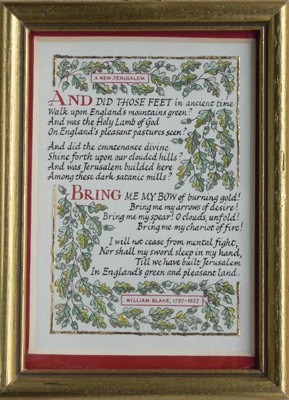 A NEW JERUSALEM
AND DID THOSE FEET in ancient time
Walk upon England's mountains green?
And was the Holy Lamb of God
On England's pleasant pastures seen?
And did the countenance divine
Shine forth upon our clouded hills?
And was Jerusalem builded here
Among these dark satanic mills?
BRING ME MY BOW of burning gold!
Bring me my arrows of desire!
Bring me my spear! O clouds, unfold!
Bring me my chariot of fire!
I will not cease from mental fight,
Nor shall my sword sleep in my hand,
Till we have built Jerusalem
In England's green and pleasant land.
WILLIAM BLAKE, 1757-1827